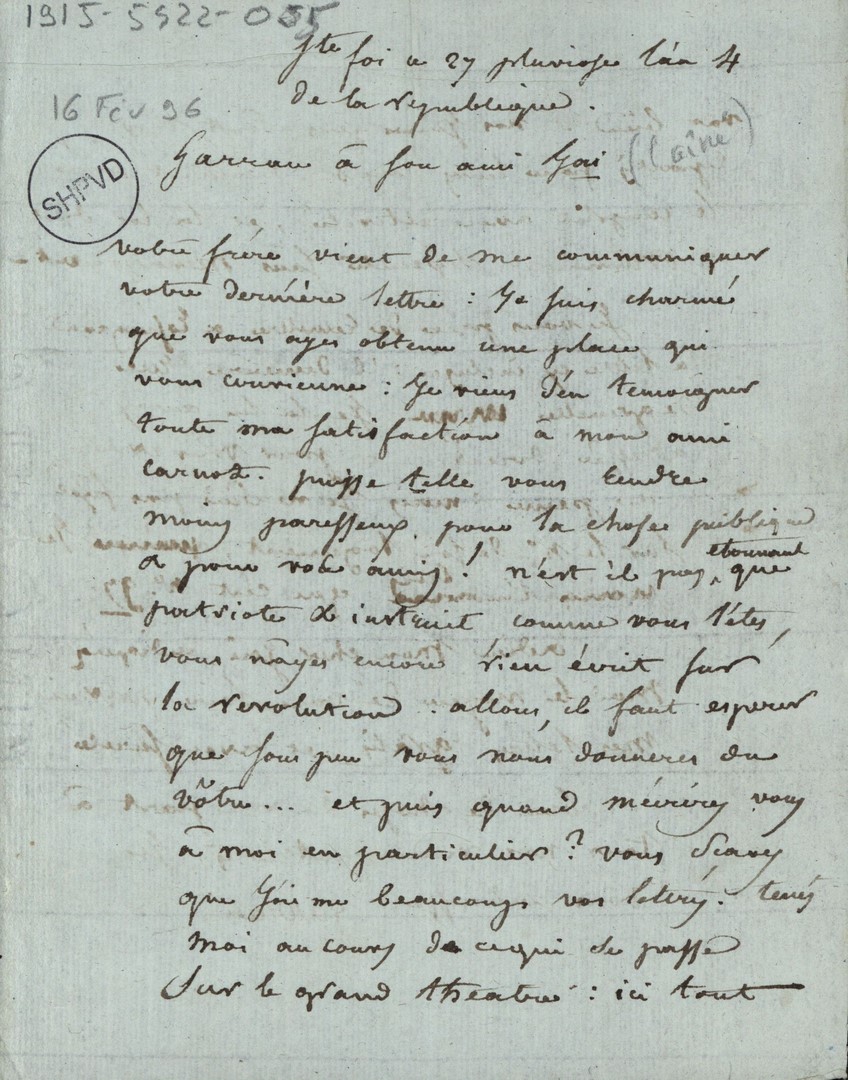 1915-5922-005
Ste foi ce 27 pluviose l'an 4
de la republique.
16 Fév 96
SHPVD
Garrau à son ami Gai (l'aîné)
votre frére vient de me communiquer
votre derniére lettre : Je suis charmé
que vous ayes obtenu une place qui
vous convienne : Je viens d'en temoigner
toute ma satisfaction à mon ami
carnot. puisse telle vous rendre
moins paresseux pour la chose publique
& pour vos amis ! n'est il pas etonnant que
patriote & instruit comme vous l'étes,
vous n'ayes encore rien écrit sur
la revolution. allons, il faut esperer
que sous peu vous nous donneres du
vôtre... et puis quand m'écrirés vous
à moi en particulier ? vous scavés
que J'aime beaucoups vos lettrés. tenés
moi au cours de ce qui se passe
Sur le grand theatre : ici tout